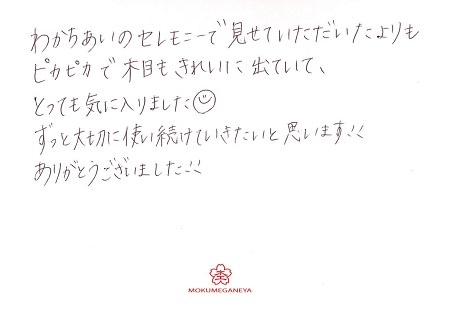 わかちあいのセレモニーで見せていただいたよりも
ピカピカで木目もきれいに出ていて、
とっても気に入りました☺
ずっと大切に使い続けていきたいと思います!!
ありがとうございました!!
MOKUMEGANEYA